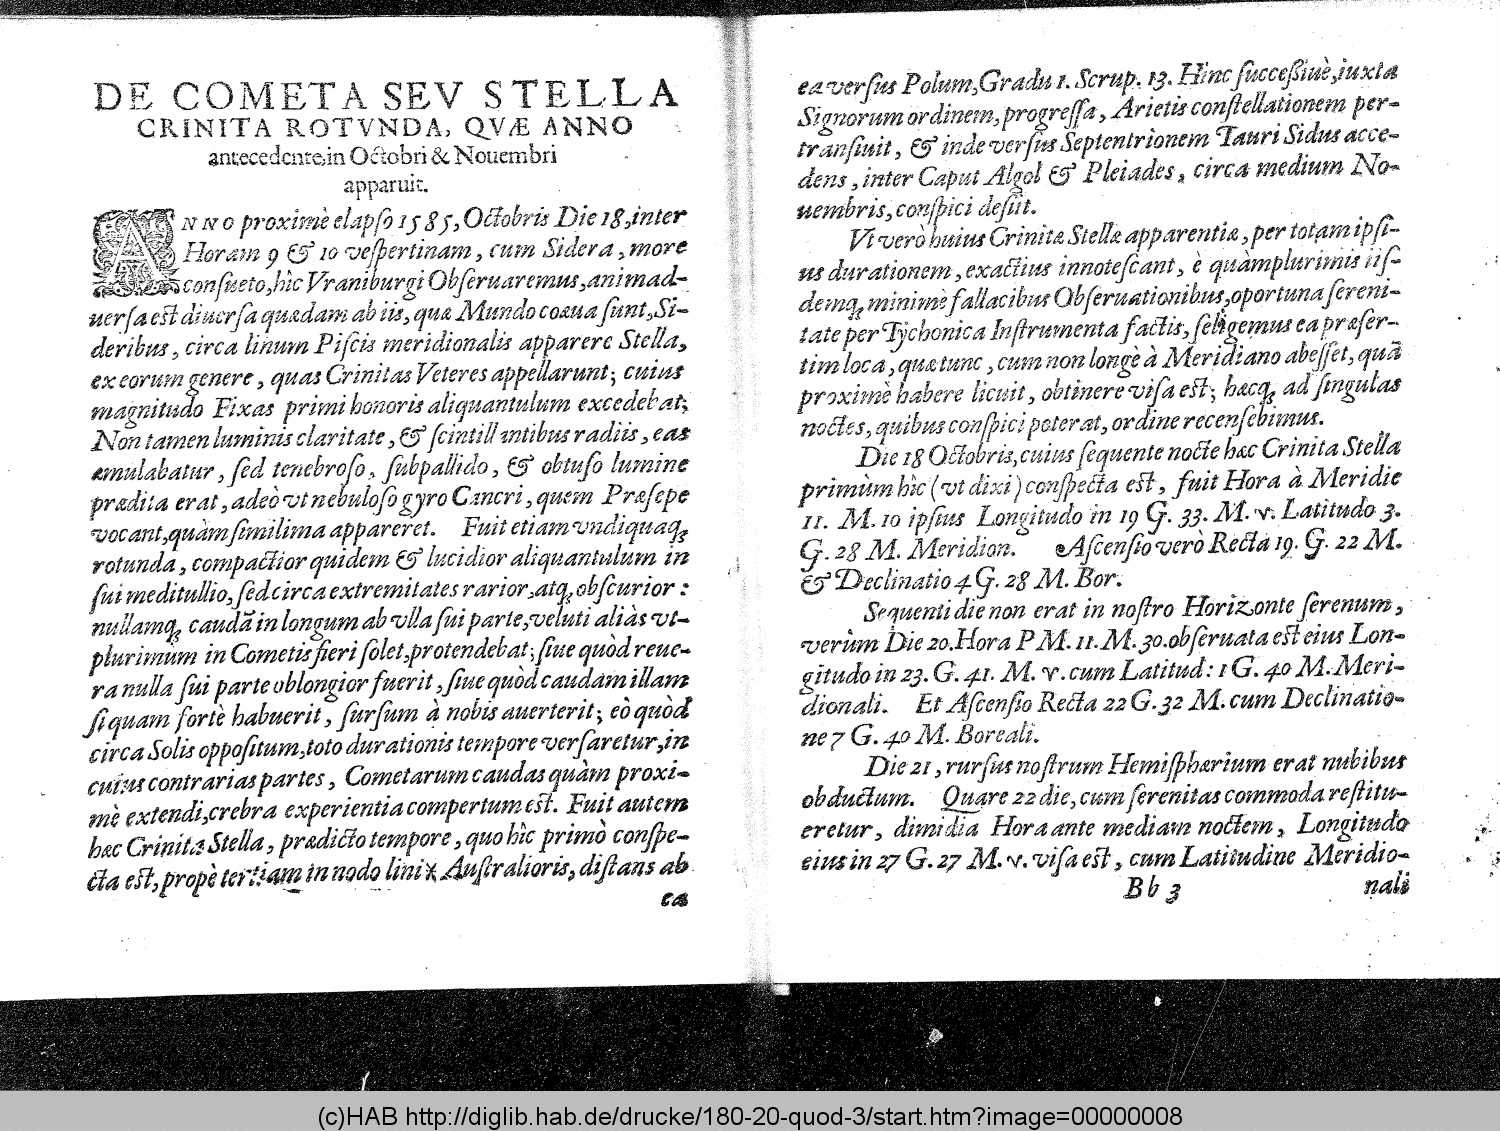 DE COMETA SEV STELLA
CRINITA ROTVNDA, QVÆ ANNO
antecedente,in Octobri & Nouembri
apparuit.
ANNO proximè elapſo 1585, Octobris Die 18,inter
Horam 9 & 10 veſpertinam, cum Sidera, more
conſueto,hîc Vraniburgi Obſeruaremus,animad-
uerſa eſt diuerſa quædam ab iis, quæ Mundo coæua ſunt,Si-
deribus, circa linum Piſcis meridionalis apparere Stella,
ex eorum genere, quas Crinitas Veteres appellarunt; cuius
magnitudo Fixas primi honoris aliquantulum excedebat;
Non tamen luminis claritate, & ſcintillantibus radiis, eas
æmulabatur, ſed tenebroſo, ſubpallido, & obtuſo lumine
prædita erat, adeò vt nebuloſo gyro Cancri, quem Præſepe
vocant,quàm ſimilima appareret. Fuit etiam vndiquaqꝫ
rotunda, compactior quidem & lucidior aliquantulum in
ſui meditullio,ſed circa extremitates rarior,atqꝫ obſcurior:
nullamqꝫ caudã in longum ab vlla ſui parte,veluti aliàs vt-
plurimùm in Cometis fieri ſolet,protendebat; ſiue quòd reue-
ra nulla ſui parte oblongior fuerit, ſiue quòd caudam illam
ſi quam fortè habuerit, ſurſum à nobis auerterit; eò quòd
circa Solis oppoſitum,toto durationis tempore verſaretur,in
cuius contrarias partes, Cometarum caudas quàm proxi-
mè extendi,crebra experientia compertum eſt. Fuit autem
hæc Crinita Stella, prædicto tempore, quo hîc primò conſpe-
cta eſt,propè tertiam in nodo lini ⁎ Auſtralioris, diſtans ab
ea
ea verſus Polum,Gradu 1. Scrup. 13. Hinc ſucceßiuè,iuxta
Signorum ordinem,progreſſa, Arietis conſtellationem per-
tranſiuit, & inde verſus Septentrionem Tauri Sidus acce-
dens, inter Caput Algol & Pleiades, circa medium No-
uembris, conſpici deſiit.
Vt verò huius Crinitæ Stellæ apparentiæ,per totam ipſi-
us durationem, exactius innoteſcant, è quàmplurimis iiſ-
demqꝫ minimè fallacibus Obſeruationibus,oportuna ſereni-
tate per Tychonica Inſtrumenta factis, ſeligemus ea præſer-
tim loca, quæ tunc, cum non longè à Meridiano abeſſet, quã
proximè habere licuit, obtinere viſa eſt; hæcqꝫ ad ſingulas
noctes, quibus conſpici poterat, ordine recenſebimus.
Die 18 Octobris, cuius ſequente nocte hæc Crinita Stella
primùm hîc (vt dixi) conſpecta eſt, fuit Hora à Meridie
11. M. 10 ipſius Longitudo in 19 G. 33. M. ♈. Latitudo 3.
G. 28 M. Meridion. Aſcenſio verò Recta 19. G. 22 M.
& Declinatio 4 G. 28 M. Bor.
Sequenti die non erat in noſtro Horizonte ſerenum,
verùm Die 20.Hora P M. 11. M. 30. obſeruata eſt eius Lon-
gitudo in 23. G. 41. M. ♈. cum Latitud: 1 G. 40 M. Meri-
dionali. Et Aſcenſio Recta 22 G. 32 M. cum Declinatio-
ne 7 G. 40 M. Boreali.
Die 21, rurſus noſtrum Hemiſphærium erat nubibus
obductum. Quare 22 die, cum ſerenitas commoda reſtitu-
eretur, dimidia Hora ante mediam noctem, Longitudo
eius in 27 G. 27 M. ♈. viſa eſt, cum Latitudine Meridio-
Bb 3 nali
(c)HAB http://diglib.hab.de/drucke/180-20-quod-3/start.htm?image=00000008